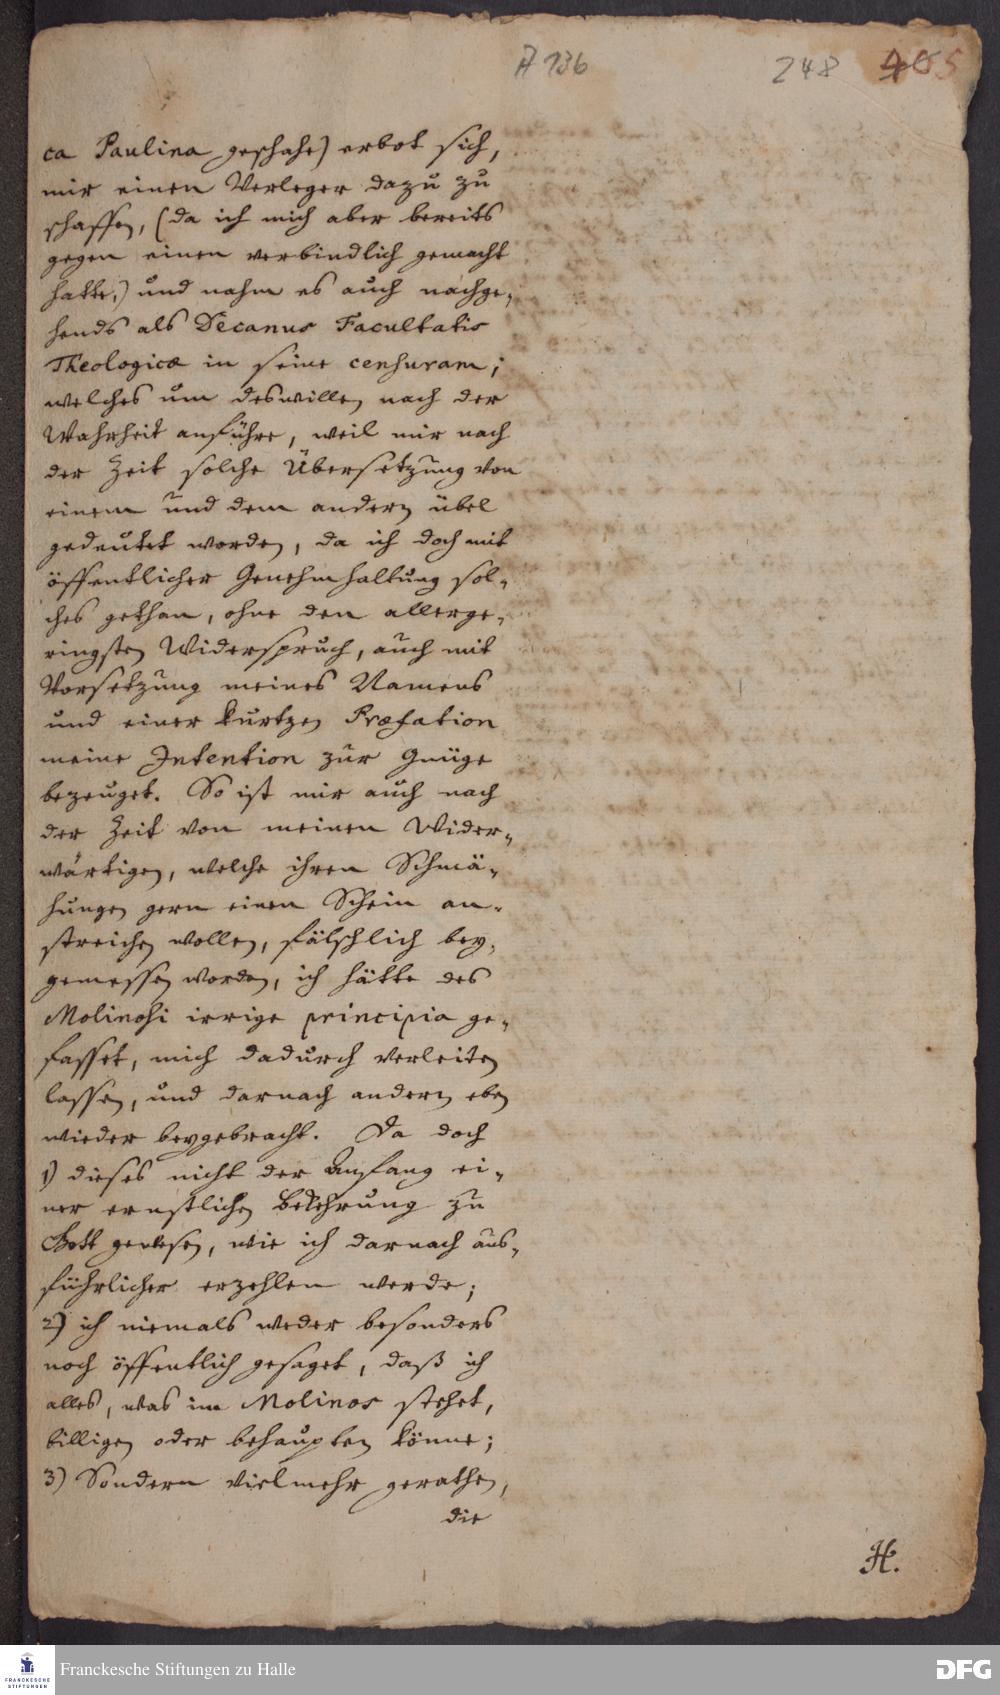 A 136
248 465
ca Paulina geschahe) erbot sich,
mir einen Verleger dazu zu
schaffen, (da ich mich aber bereits
gegen einen verbindlich gemacht
hatte,) und nahm es auch nachge-
hends als Decanus Facultatis
Theologicæ in seine censuram;
welches um deswillen nach der
Wahrheit anführe, weil mir nach
der Zeit solche Übersetzung von
einem und dem andern übel
gedeutet worden, da ich doch mit
öffentlicher Genehmhaltung sol-
ches gethan, ohne den allerge-
ringsten Widerspruch, auch mit
Vorsetzung meines Namens
und einer kurtzen Præfation
meine Intention zur Gnüge
bezeuget. So ist mir auch nach
der Zeit von meinen Wider-
wärtigen, welche ihren Schmä-
hungen gern einen Schein an-
streichen wollen, fälschlich bey-
gemessen worden, ich hätte des
Molinosi irrige principia ge-
fasset, mich dadurch verleiten
lassen, und darnach andern eben
wieder beygebracht. Da doch
1) dieses nicht der Anfang ei-
ner ernstlichen Bekehrung zu
Gott gewesen, wie ich darnach aus-
führlicher erzehlen werde;
2) ich niemals weder besonders
noch öffentlich gesaget, daß ich
alles, was im Molinos stehet,
billigen oder behaupten könne;
3) Sondern vielmehr gerathen,
die
H.
FRANCKESCHE STIFTUNGEN
Franckesche Stiftungen zu Halle
DFG